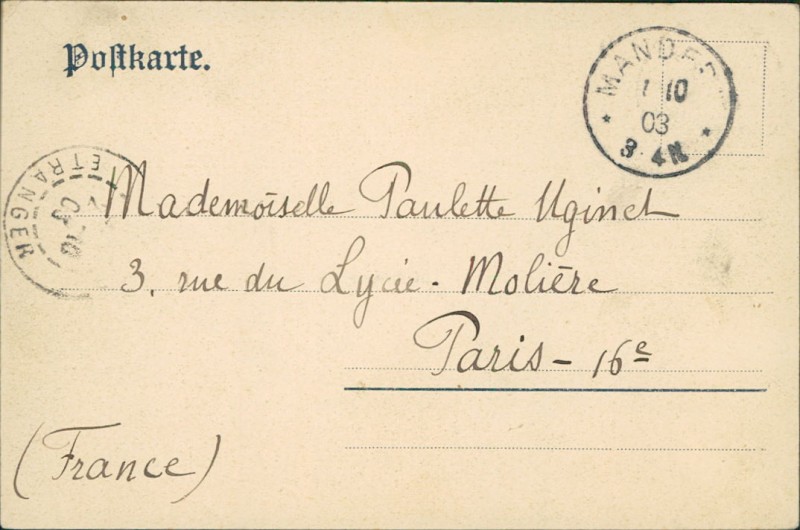 Postkarte.
MANDEF
1 10
03
3-4N.
ETRANGER
Mademoiselle Paulette Uginet
3, rue du Lycée - Molière
Paris - 16e
(France)